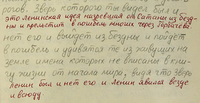 рогов. Зверь которого ты видел был и
это ленинская идея назревшая от Сатаны из безд-
ны и прельстит в погибель многих через Горбачева
нет его и выйдет из бездны и пойдет
в погибель и удивятся те из живущих на
земле имена которых не вписаны в кни-
гу жизни от начала мира, видя что зверь
ленин был и нет его и ленин явился везде
и всюду